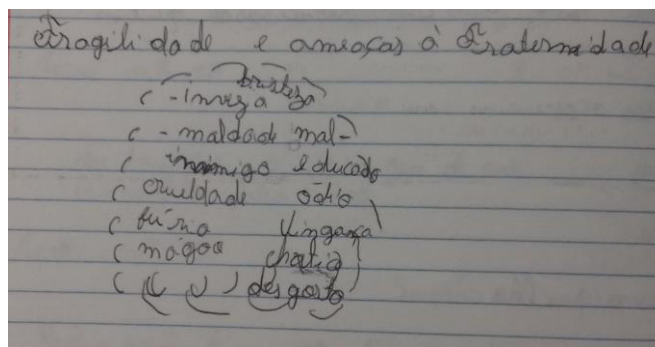 Fragilidade e ameaças à Fraternidade
tristeza
( - inveja
( - maldade mal-
( inimigo educado
( crueldade ódio
( fúria vingança
( mágoa
( ( ( ) ) desgosto